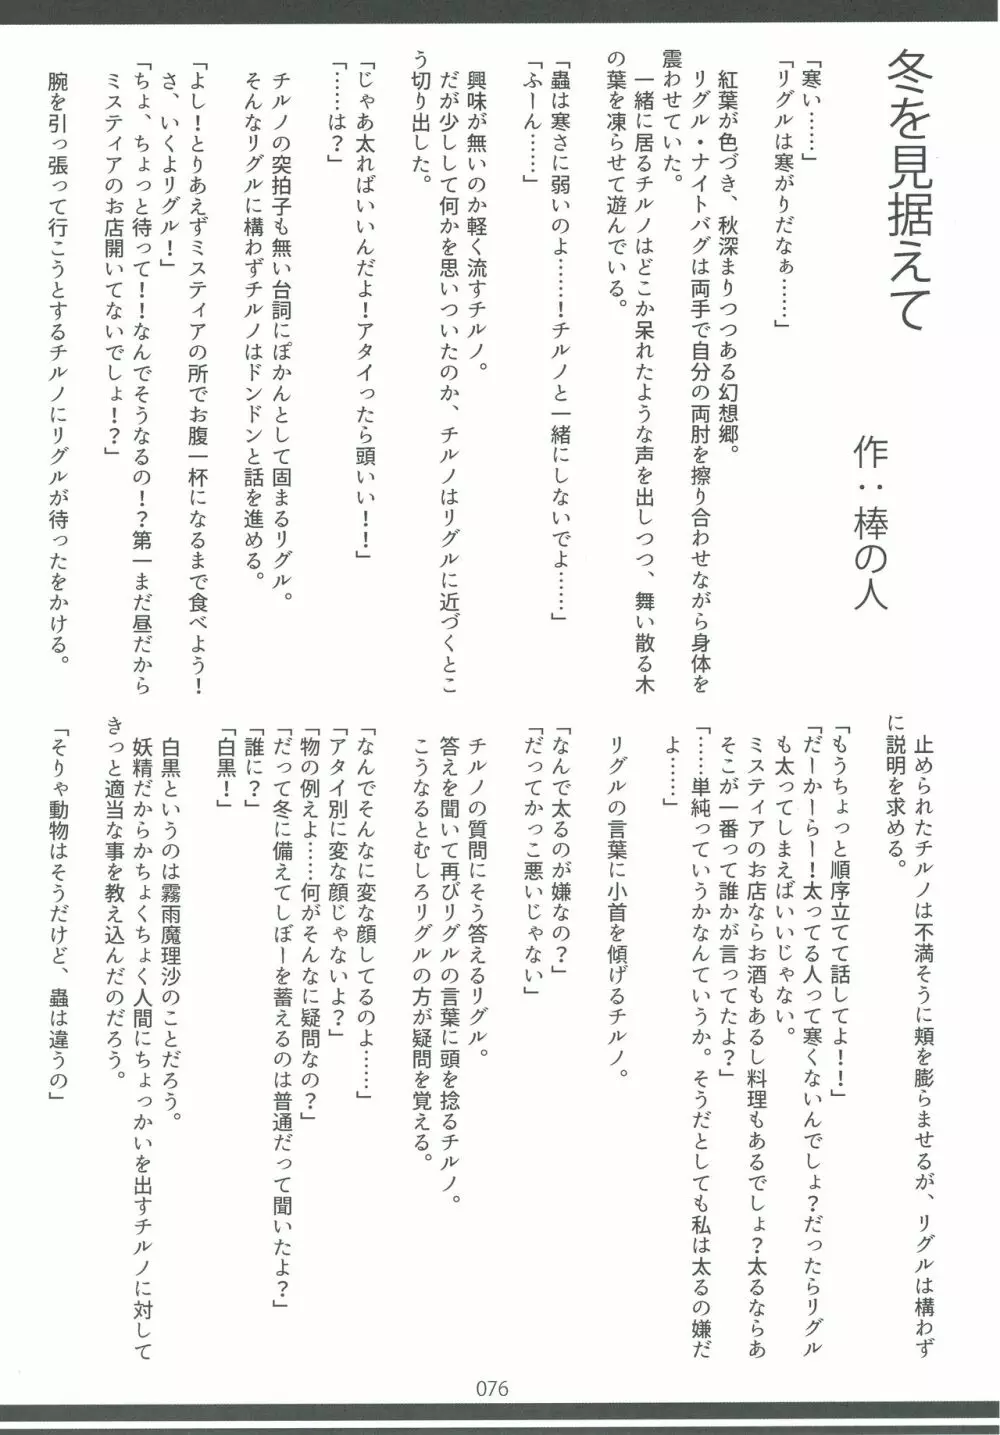 冬を見据えて
作：棒の人
「寒い……」
「リグルは寒がりだなぁ……」
紅葉が色づき、秋深まりつつある幻想郷。
リグル・ナイトバグは両手で自分の両肘を擦り合わせながら身体を
震わせていた。
一緒に居るチルノはどこか呆れたような声を出しつつ、舞い散る木
の葉を凍らせて遊んでいる。
「蟲は寒さに弱いのよ……！チルノと一緒にしないでよ……」
「ふーん……」
興味が無いのか軽く流すチルノ。
だが少しして何かを思いついたのか、チルノはリグルに近づくとこ
う切り出した。
「じゃあ太ればいいんだよ！アタイったら頭いい！！」
「……は？」
チルノの突拍子も無い台詞にぽかんとして固まるリグル。
そんなリグルに構わずチルノはドンドンと話を進める。
「よし！とりあえずミスティアの所でお腹一杯になるまで食べよう！
さ、いくよリグル！」
「ちょ、ちょっと待って！！なんでそうなるの！？第一まだ昼だから
ミスティアのお店開いてないでしょ！？」
腕を引っ張って行こうとするチルノにリグルが待ったをかける。
止められたチルノは不満そうに頬を膨らませるが、リグルは構わず
に説明を求める。
「もうちょっと順序立てて話してよ！！」
「だーかーらー！太ってる人って寒くないんでしょ？だったらリグル
も太ってしまえばいいじゃない。
ミスティアのお店ならお酒もあるし料理もあるでしょ？太るならあ
そこが一番って誰かが言ってたよ？」
「……単純っていうかなんていうか。そうだとしても私は太るの嫌だ
よ……」
リグルの言葉に小首を傾げるチルノ。
「なんで太るのが嫌なの？」
「だってかっこ悪いじゃない」
チルノの質問にそう答えるリグル。
答えを聞いて再びリグルの言葉に頭を捻るチルノ。
こうなるとむしろリグルの方が疑問を覚える。
「なんでそんなに変な顔してるのよ……」
「アタイ別に変な顔じゃないよ？」
「物の例えよ……何がそんなに疑問なの？」
「だって冬に備えてしぼーを蓄えるのは普通だって聞いたよ？」
「誰に？」
「白黒！」
白黒というのは霧雨魔理沙のことだろう。
妖精だからかちょくちょく人間にちょっかいを出すチルノに対して
きっと適当な事を教え込んだのだろう。
「そりゃ動物はそうだけど、蟲は違うの」
076